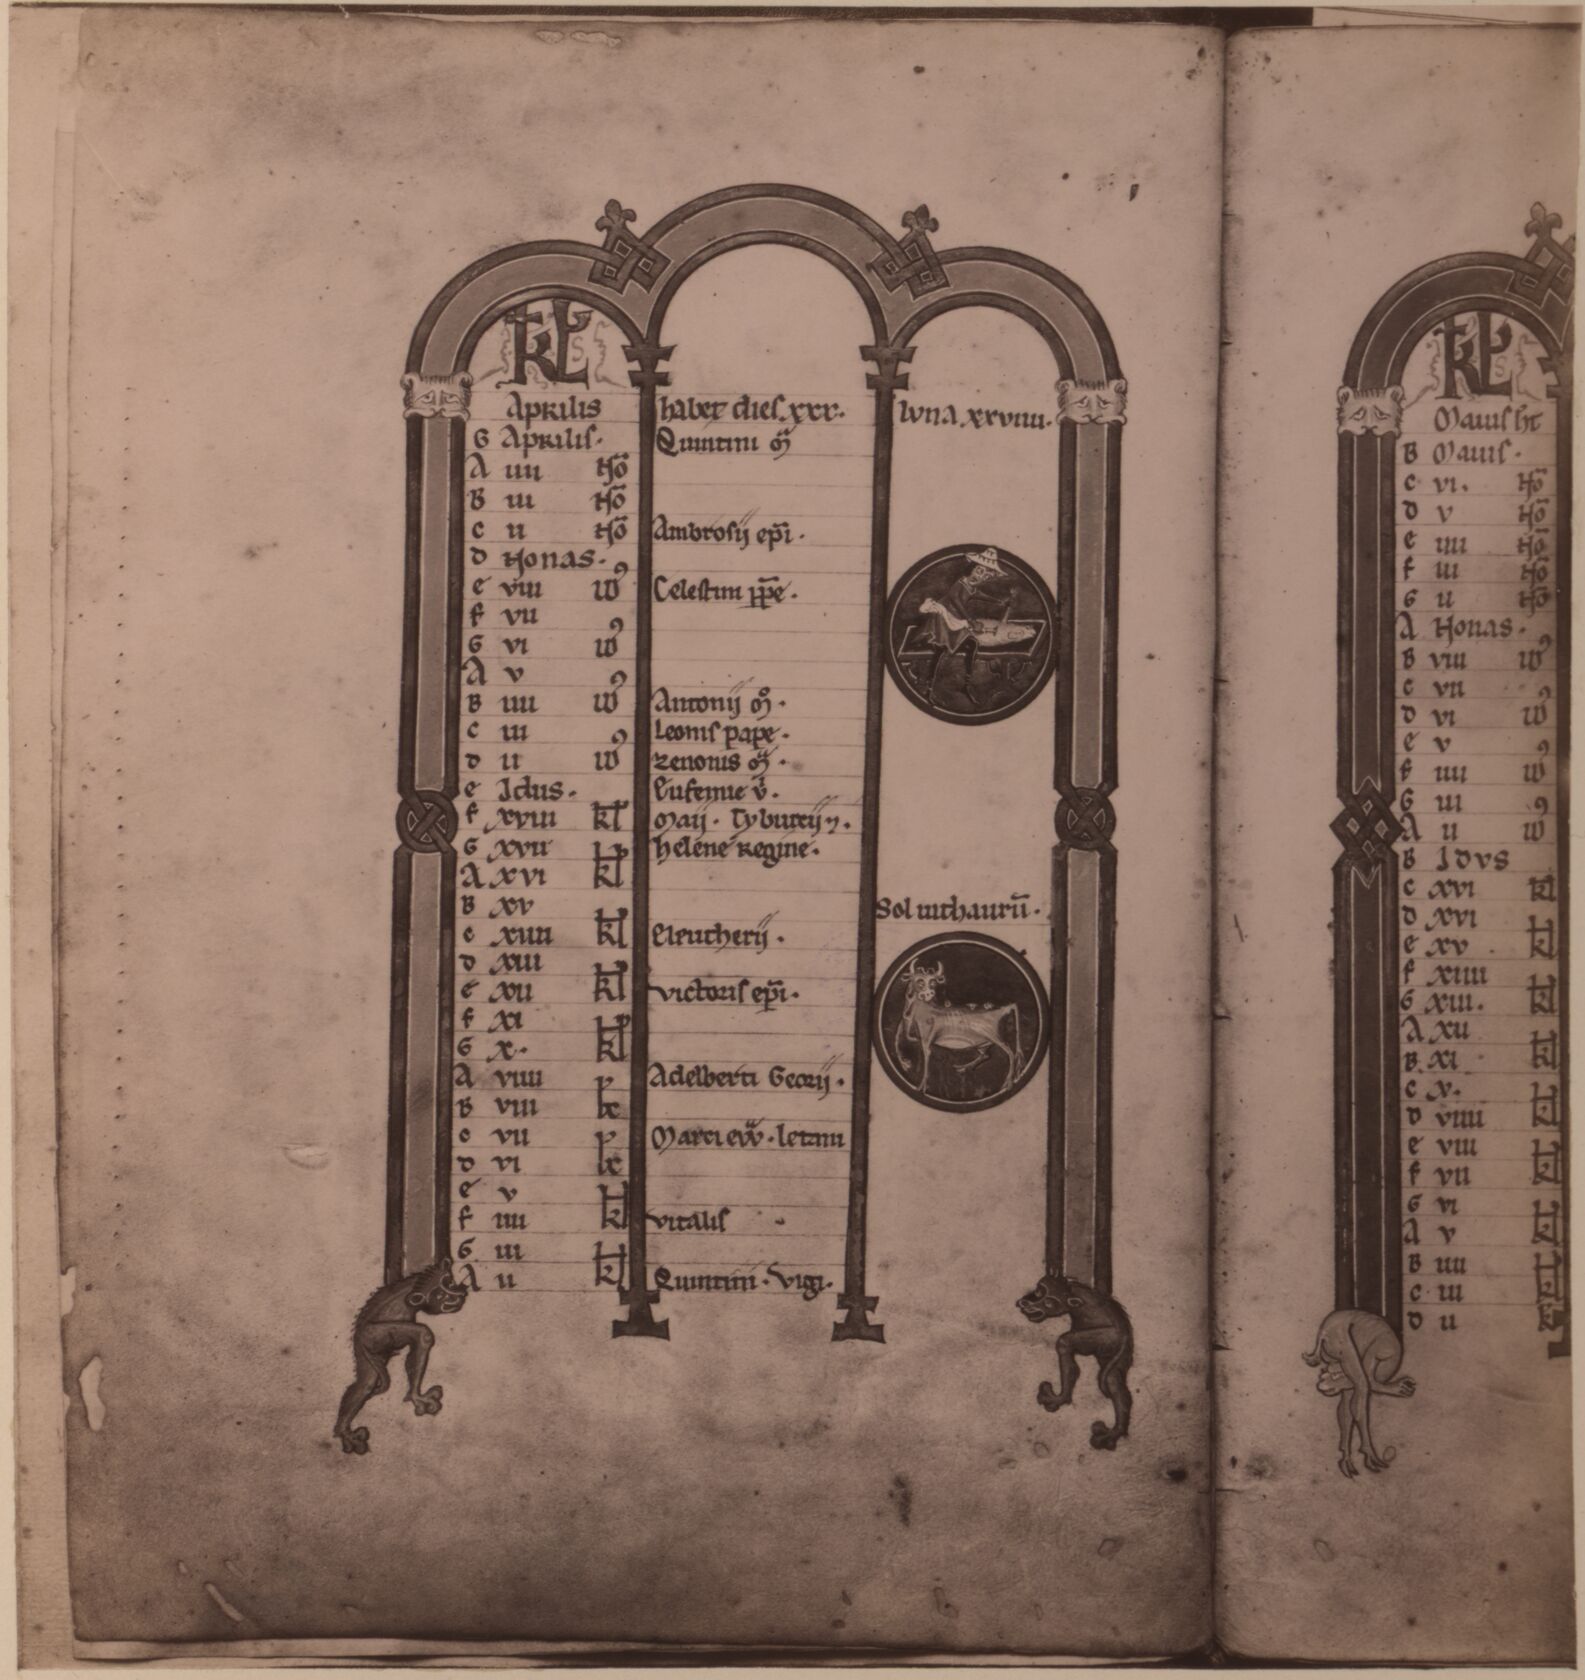 KL
Aprilis habet dies.xxx. luna.xxviiii.
G Aprilis. Quintini m̄
A iiii No̅
B iii No̅
c ii No̅ Ambrosij ep̄i.
d Nonas.
e viii id⁹ Celestini p̄pe.
f vii
G vi id⁹
A v
B iiii id⁹ Antonij mo̅.
c iii Leonis pape.
d ii id⁹ zenonis m̄.
e Idus. Eufemie v̄.
f xviii kl Marij. Tyburcij ⁊.
G xvii helene Regine.
A xvi kl
B xv
c xiiii kl Eleutherij.
d xiii
e xii kl victoris ep̄i.
f xi
G x. kl
A viiii Adelberti Georij.
B viii kl
c vii Marci evv̄. letani
d vi kl
e v
f iiii kl vitalis
G iii
A ii kl Quintini. Vigi.
Sol in thaurū.
KL
Maius ht
B Maius.
c vi. No̅
d v No̅
e iiii No̅
f iii No̅
G ii No̅
A Nonas.
B viii id⁹
c vii
d vi id⁹
e v
f iiii id⁹
G iii
A ii id⁹
B Idvs
c xvi kl
d xvi
e xv kl
f xiiii
G xiii. kl
A xii
B xi kl
c x.
d viiii kl
e viii
f vii kl
G vi
A v kl
B iiii
c iii kl
d ii